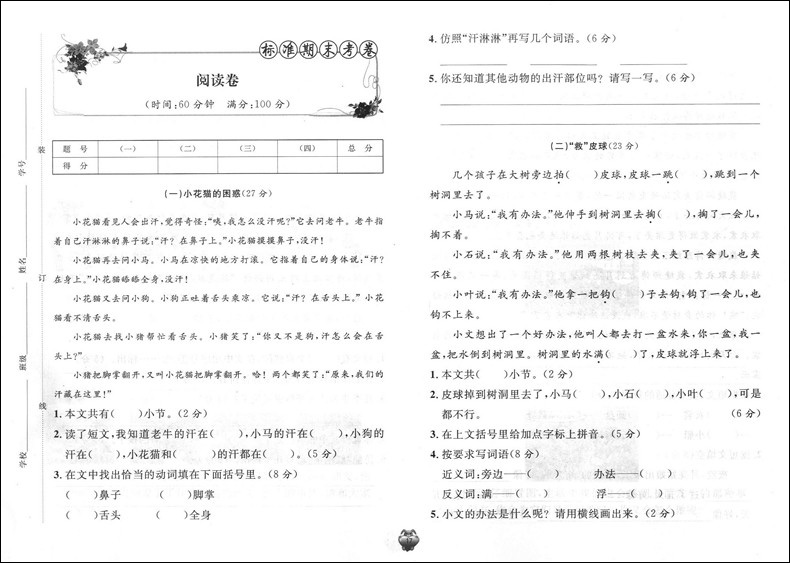 标准期末考卷
阅读卷
(时间:60分钟 满分:100分)
题号 (一) (二) (三) (四) 总分
得分
学号
姓名
班级
学校
装
订
线
(一)小花猫的困惑(27分)
小花猫看见人会出汗,觉得奇怪:“咦,我怎么没汗呢?”它去问老牛。老牛指
着自己汗淋淋的鼻子说:“汗?在鼻子上。”小花猫摸摸鼻子,没汗!
小花猫再去问小马。小马在凉快的地方打滚。它指着自己的身体说:“汗?
在身上。”小花猫舔舔全身,没汗!
小花猫又去问小狗。小狗正吐着舌头乘凉。它说:“汗?在舌头上。”小花
猫看不清舌头。
小花猫去找小猪帮忙看舌头。小猪笑了:“你又不是狗,汗怎么会在舌
头上?”
小猪把脚掌翻开,又叫小花猫把脚掌翻开。哈!两个都笑了:“原来,我们的
汗藏在这里!”
1.本文共有( )小节。(2分)
2.读了短文,我知道老牛的汗在( ),小马的汗在( ),小狗的
汗在( ),小花猫和( )的汗都在( )。(5分)
3.在文中找出恰当的动词填在下面括号里。(8分)
( )鼻子 ( )脚掌
( )舌头 ( )全身
4.仿照“汗淋淋”再写几个词语。(6分)
5.你还知道其他动物的出汗部位吗?请写一写。(6分)
(二)“救”皮球(23分)
几个孩子在大树旁边拍( )皮球,皮球一跳( ),跳到一个
树洞里去了。
小马说:“我有办法。”他伸手到树洞里去掏( ),掏了一会儿,
掏不着。
小石说:“我有办法。”他用两根树枝去夹,夹了一会儿,也夹
不住。
小叶说:“我有办法。”他拿一把钩( )子去钩,钩了一会儿,也
钩不上来。
小文想出了一个好办法,他叫人都去打一盆水来,你一盆,我一
盆,把水倒到树洞里。树洞里的水满( )了,皮球就浮上来了。
1.本文共( )小节。(2分)
2.皮球掉到树洞里去了,小马( ),小石( ),小叶( ),可是
都不行。 (6分)
3.在上文括号里给加点字标上拼音。(5分)
4.按要求写词语(8分)
近义词:旁边—( ) 办法—( )
反义词:满—( ) 浮—( )
5.小文的办法是什么呢?请用横线画出来。(2分)
17